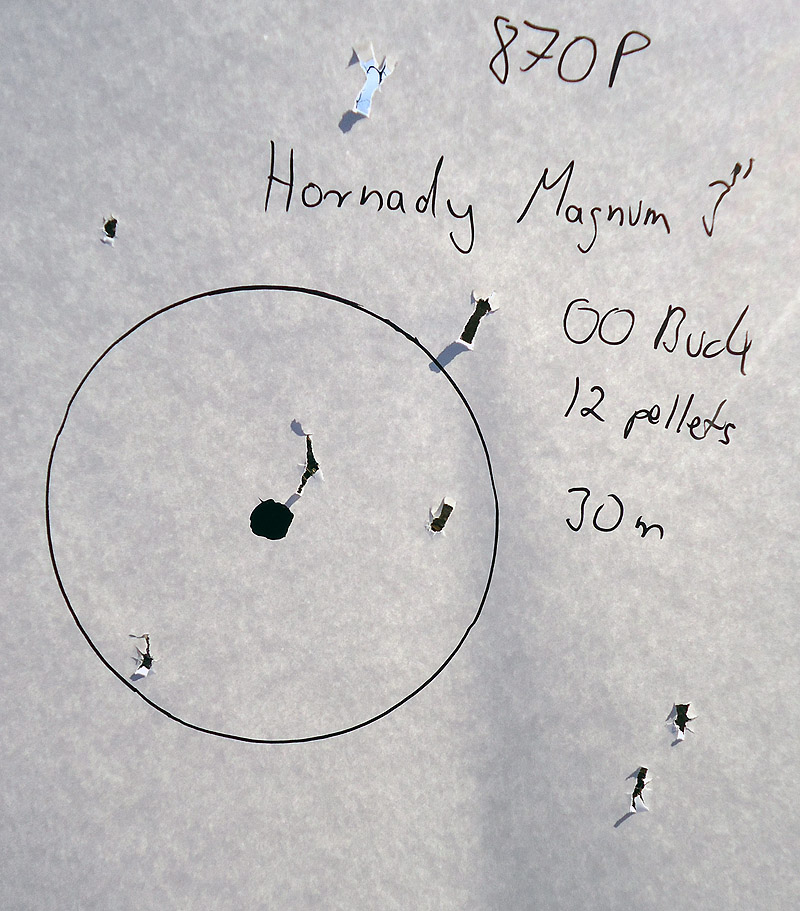 870P
Hornady Magnum 3"
00 Buck
12 pellets
30m